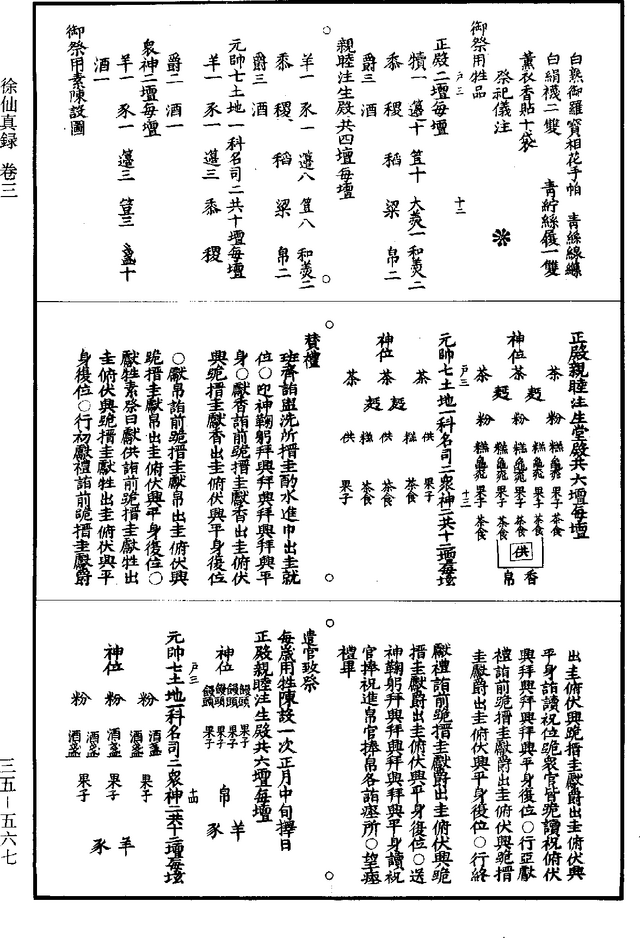 徐仙真録 卷三
白熟御羅寶相花手帕 青絲線縧
白絹襪二雙 青紵絲履一雙
薰衣香貼十袋
祭祀儀注
御祭用牲品
正殿二壇每壇
犢一 籩十 笪十 大羹一 和羹二
黍 稷 稻 粱 帛二
爵三 酒
親睦注生殿共四壇每壇
羊一 豕一 籩八 笪八 和羹二
黍 稷 稻 粱 帛二
爵三 酒
元帥七土地一科名司二共十壇每壇
羊一 豕一 籩三 黍 稷
爵二 酒一
衆神二壇每壇
羊一 豕一 籩三 笪三 盞十
酒一
御祭用素陳設圖
正殿親睦注生堂殿共六壇每壇
神位
茶 茶 茶
麪 麪
粉 粉
糕 糕 糕 糕 糕
果子 果子 果子 果子
茶食 茶食 茶食 茶食 茶食
供
香
帛
元帥七土地一科名司二衆神二共十二壇每壇
神位
茶 茶 茶
麪 麪
供 糕 糕 供
果子 茶食 茶食 果子
賛禮
班齊詣盥洗所搢圭酌水進巾出圭就
位○迎神鞠躬拜興拜興拜興拜興平
身○獻香詣前跪搢圭獻香出圭俯伏
興跪搢圭獻香出圭俯伏興平身復位
○獻帛詣前跪搢圭獻帛出圭俯伏興
跪搢圭獻帛出圭俯伏興平身復位○
獻牲素祭曰獻供詣前跪搢圭獻牲出
圭俯伏興跪搢圭獻牲出圭俯伏興平
身復位○行初獻禮詣前跪搢圭獻爵
出圭俯伏興跪搢圭獻爵出圭俯伏興
平身詣讀祝位跪衆官皆跪讀祝俯伏
興拜興拜興平身復位○行亞獻
禮詣前跪搢圭獻爵出圭俯伏興跪搢
圭獻爵出圭俯伏興平身復位○行終
獻禮詣前跪搢圭獻爵出圭俯伏興跪
搢圭獻爵出圭俯伏興平身復位○送
神鞠躬拜興拜興拜興拜興平身讀祝
官捧祝進帛官捧帛各詣瘞所○望瘞
禮畢
遣官致祭
每歲用牲陳設一次正月中旬擇日
正殿親睦注生殿共六壇每壇
神位
饅頭 饅頭 饅頭 饅頭
果子 果子 果子 果子
帛
羊
豕
元帥七土地一科名司二衆神二共十二壇每壇
神位
粉 粉 粉
酒盞 酒盞 酒盞 酒盞 酒盞
果子 果子 果子
羊
豕
三五－五六七